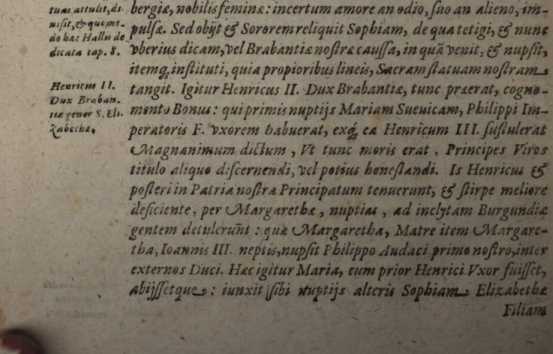 tuas attulit, di-
misit, & quomo-
do hæc Hallis de
dicata cap. 8.
Henricus II.
Dux Braban-
tiæ gener S. Eli-
zabethæ,
bergiæ, nobilis feminæ: incertum amore an odio, suo an alieno, im-
pulsæ. Sed obijt & Sororem reliquit Sophiam, de qua tetigi, & nunc
vberius dicam, vel Brabantiæ nostræ caussa, in quã venit, & nupsit,
itemq́, instituti, quia propioribus lineis, Sacram statuam nostram
tangit. Igitur Henricus II. Dux Brabantiæ, tunc præerat, cogno-
mento Bonus: qui primis nuptijs Mariam Sueuicam, Philippi Im-
peratoris F. vxorem habuerat, exq́, ea Henricum III. sustulerat
Magnanimum dictum, Vt tunc moris erat, Principes Viros
titulo aliquo discernendi, vel potius honestandi. Is Henricus &
posteri in Patria nostra Principatum tenuerunt, & stirpe meliore
deficiente, per Margarethæ, nuptias, ad inclytam Burgundiæ
gentem detulerunt: quæ Margaretha, Matre item Margare-
tha, Ioannis III. neptis, nupsit Philippo Audaci primo nostro, inter
externos Duci. Hæc igitur Maria, cum prior Henrici Vxor fuisset,
abijssetque: iunxit sibi nuptijs alteris Sophiam Elizabethæ
Filiam